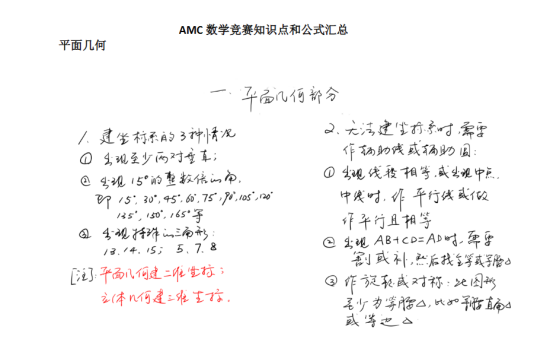 AMC 数学竞赛知识点和公式汇总
平面几何
一、平面几何部分
1. 建坐标系的3种情况
① 出现至少两对垂直;
② 出现15°的整数倍的角,
即 15°, 30°, 45°, 60°, 75°, 90°, 105°, 120°
135°, 150°, 165° 等
③ 出现特殊的三角形:
13. 14. 15; 5. 7. 8
[注]: 平面几何建二维坐标;
立体几何建三维坐标.
2. 无法建坐标系时, 需要
作辅助线或辅助圆:
① 出现线段相等, 或出现中点,
中线时, 作平行线或做
作平行且相等
② 出现 AB+CD=AD时, 需要
割或补, 然后找全等或等腰△
③ 作旋转或对称: 此图形
至少为等腰△, 比如等腰直角△
或等边△